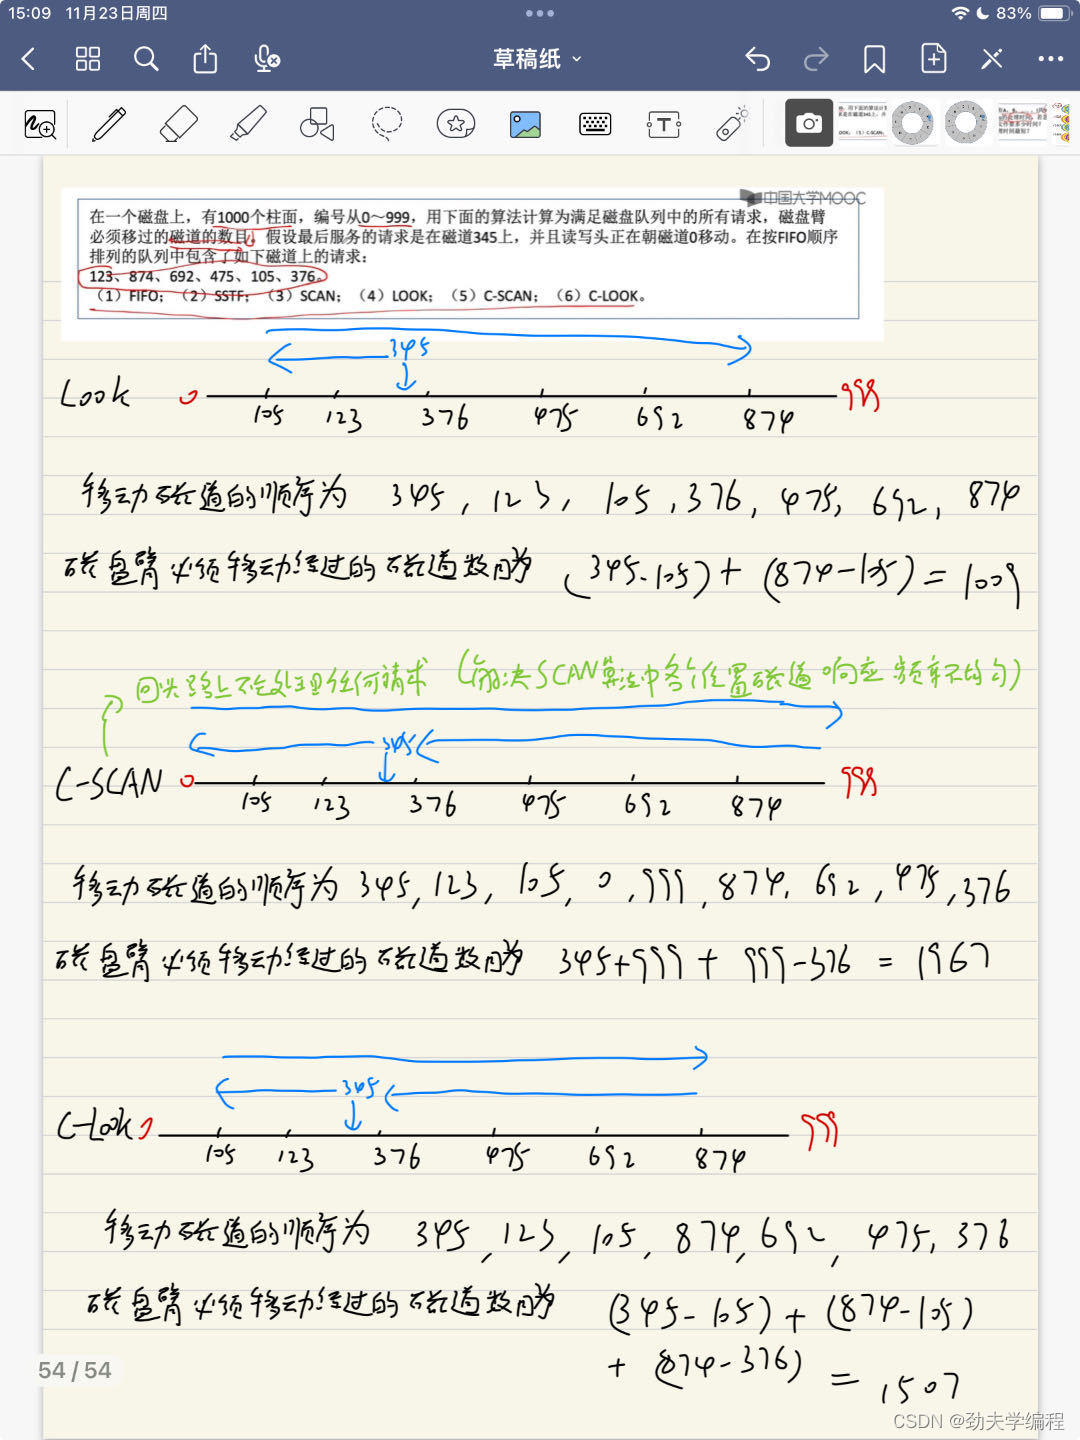 15:09 11月23日周四 83%
草稿纸
中国大学MOOC
在一个磁盘上，有1000个柱面，编号从0～999，用下面的算法计算为满足磁盘队列中的所有请求，磁盘臂
必须移过的磁道的数目。假设最后服务的请求是在磁道345上，并且读写头正在朝磁道0移动。在按FIFO顺序
排列的队列中包含了如下磁道上的请求：
123、874、692、475、105、376。
（1）FIFO；（2）SSTF；（3）SCAN；（4）LOOK；（5）C-SCAN；（6）C-LOOK。
345
Look 0 999
105 123 376 475 692 874
移动磁道的顺序为 345, 123, 105, 376, 475, 692, 874
磁盘臂必须移动经过的磁道数目为 (345-105)+(874-105)=1009
回头路上不会处理任何请求 (解决SCAN算法中各个位置磁道响应频率不均匀)
345
C-SCAN 0 999
105 123 376 475 692 874
移动磁道的顺序为 345, 123, 105, 0, 999, 874, 692, 475, 376
磁盘臂必须移动经过的磁道数目为 345+999+999-376=1967
345
C-Look 0 999
105 123 376 475 692 874
移动磁道的顺序为 345, 123, 105, 874, 692, 475, 376
磁盘臂必须移动经过的磁道数目为 (345-105)+(874-105)
+(874-376)=1507
54 / 54
CSDN @劲夫学编程